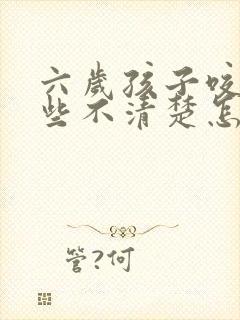 六歲孩子咬
些不清楚怎
管?何